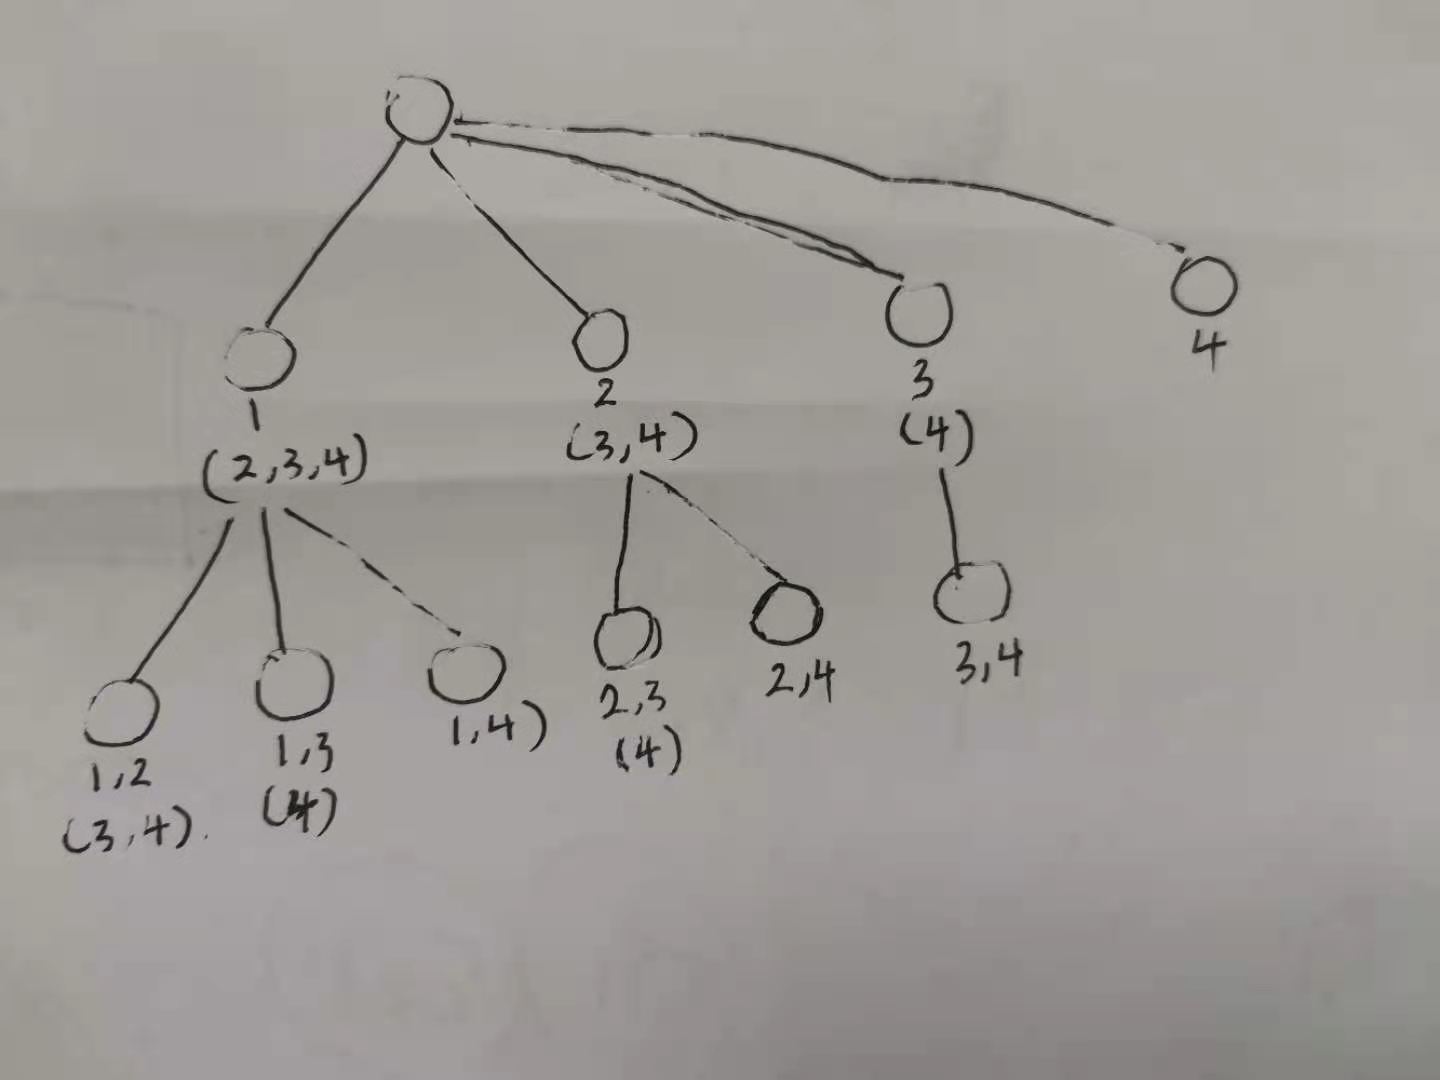 4
3
(4)
2
(3,4)
1
(2,3,4)
1,2
(3,4).
1,3
(4)
1,4)
2,3
(4)
2,4
3,4